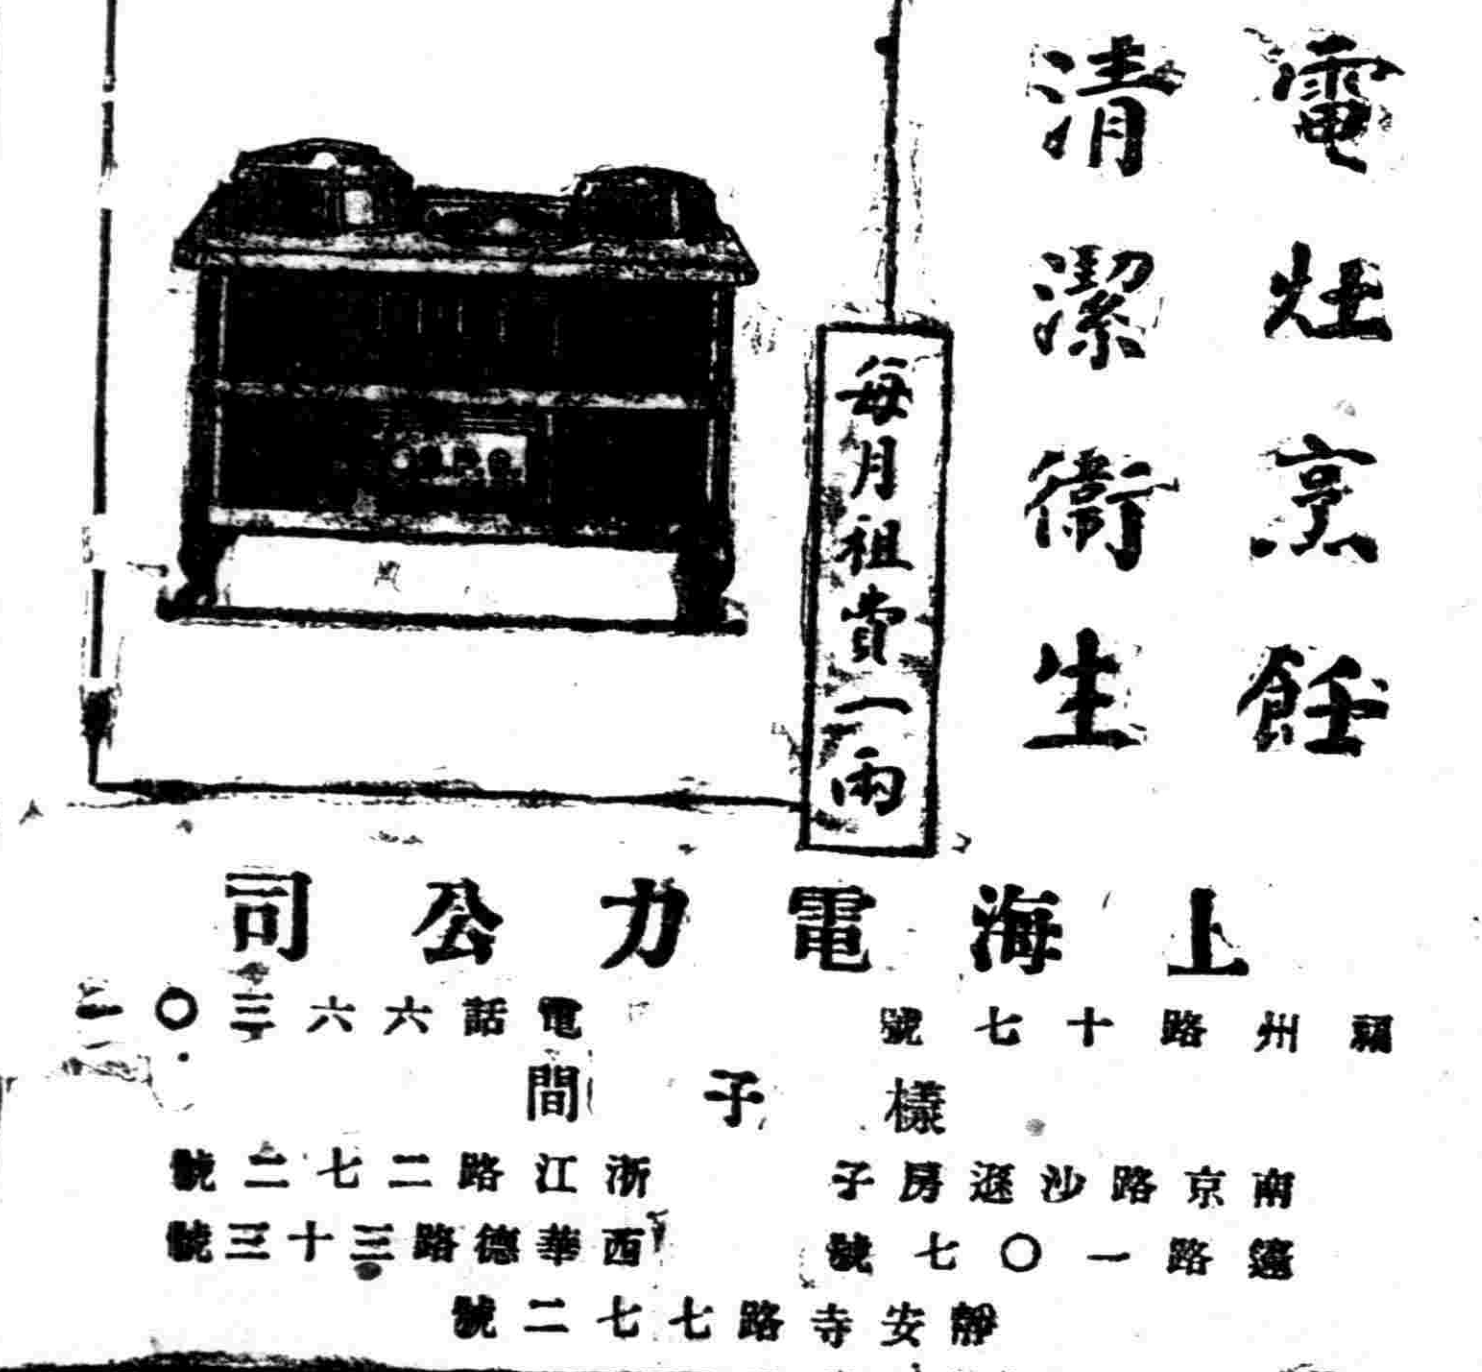 電灶烹飪
清潔衛生
每月祖費一兩
S.P.C.
上海電力公司
福州路十七號
電話六六三〇二
樣子間
南京路沙遜房子
浙江路二七二號
路一〇七號
西華德路三十三號
靜安寺路七七二號